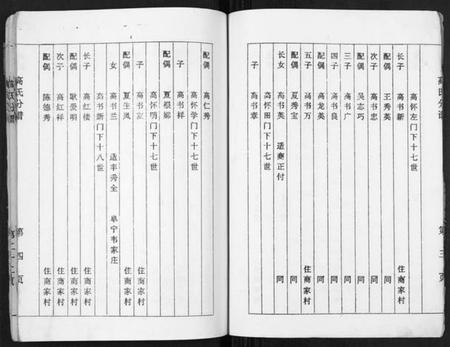 高氏分谱
第三页
高怀左门下十七世
长子 高书新 住商家村
配偶 王秀英 同
次子 高书忠 同
配偶 吴志巧 同
三子 高书广 同
四子 高书良 同
配偶 高龙英 同
五子 高书万 住商家村
配偶 夏秀宝 同
女 高书英 适商正付
高怀田门下十七世
子 高书章 同
配偶 高仁秀
高怀学门下十七世
子 高书祥
配偶 夏根娜
高怀明门下十七世
子 高书京 住商家村
配偶 夏生凤 住商家村
女 高书兰 适丰秀全 阜宁韦家庄
高书新门下十八世
长子 高红楼 住商家村
配偶 耿景明 住商家村
次子 高红祥 住商家村
配偶 陈德秀 住商家村
高氏分谱
第四页